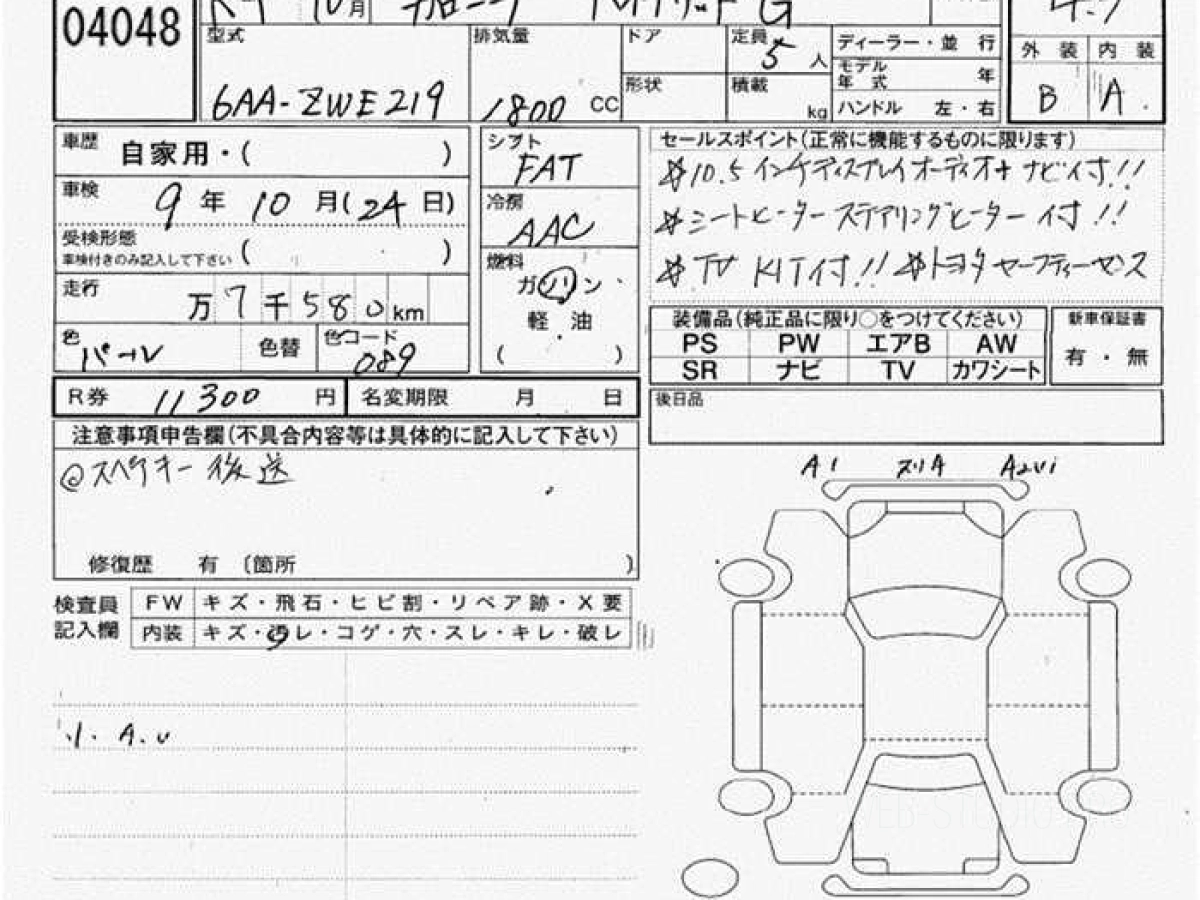 04048
10月 ハイブリッド G
型式 排気量 ドア 定員 5 人 ディーラー・並 行
モデル年式 年
外 装 内 装
6AA-ZWE219 1800 CC 形状 積載 kg ハンドル 左・右
B A
車歴 自家用・( )
シフト FAT
セールスポイント(正常に機能するものに限ります)
※10.5インチディスプレイオーディオ+ナビ付!!
車検 9 年 10 月(24 日)
冷房 AAC
※シートヒーター ステアリングヒーター付!!
受検形態 ( )
車検付きのみ記入して下さい
燃料 ガソリン・
※TV KIT付!! ※トヨタセーフティーセンス
走行 万 7 千 580 km
軽・油
( )
装備品(純正品に限り○をつけてください)
新車保証書
PS PW エアB AW
有・無
色 パール 色替 色コード 089
SR ナビ TV カワシート
R券 11300 円 名変期限 月 日
後日品
注意事項申告欄(不具合内容等は具体的に記入して下さい)
@スペアキー後送
A1 ヌリA A2U1
修復歴 有 〔箇所 〕
検査員記入欄
FW キズ・飛石・ヒビ割・リペア跡・X要
内装 キズ・汚レ・コゲ・穴・スレ・キレ・破レ
小.A.U